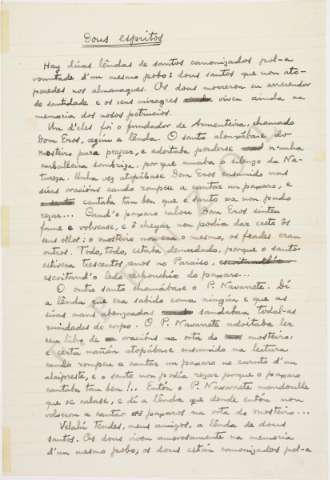 Dous espritos
Hay dúas lendas de santos canonizados pol-a
vountade d'un mesmo pobo: dous santos que non ato-
paredes nos almanaques. Os dous morreron en arrecendor
de santidade e os seus miragres viven ainda na
memoria dos nosos petrucios.
Un d'eles foi o fundador de Armenteira, chamado
Dom Eros, segun a lenda. O santo alonxábase do
mosteiro para pregar, e adoitaba perderse n-unha
carballeira sombriza, porque amaba o silenzo da Na-
tureza. Unha vez atopábase Dom Eros ensumido nas
súas oraciós cando rompeu a cantar un paxaro, e
cantaba tan ben que o santo xa non puido
rezar... Cand'o paxaro calou Dom Eros sinteu
fame e volveuse, e ó chegar non podía dar creto ós
seus ollos: o mosteiro non era o mesmo, os frades eran
outros. Todo, todo, estaba demudado, porque o santo
estivera trescentos anos no Paraiso,
escoitand'o ledo rechouchío do paxaro...
O outro santo chamábase o P. Navarrete. Di
a lenda que era sabido coma ningún e que as
súas maus abenzoadas sandaban todal-as
ruindades do corpo. O P. Navarrete adoitaba ler
seu libro de oraciós na orta do mosteiro;
e certa mañán atopábase ensumido na leitura
cando rompeu a cantar un paxaro no curuto d'un
alciprest, e o santo non podía rezar porque o paxaro
cantaba tan ben!... Entón o P. Navarrete mandoulle
que se calase, e di a lenda que dende entón non
volveron a cantar os paxaros na orta do mosteiro...
Velahí tendes, meus amigos, a lenda de dous
santos. Os dous viven amorosamente na memoria
d'un mesmo pobo, os dous están canonizados pol-a